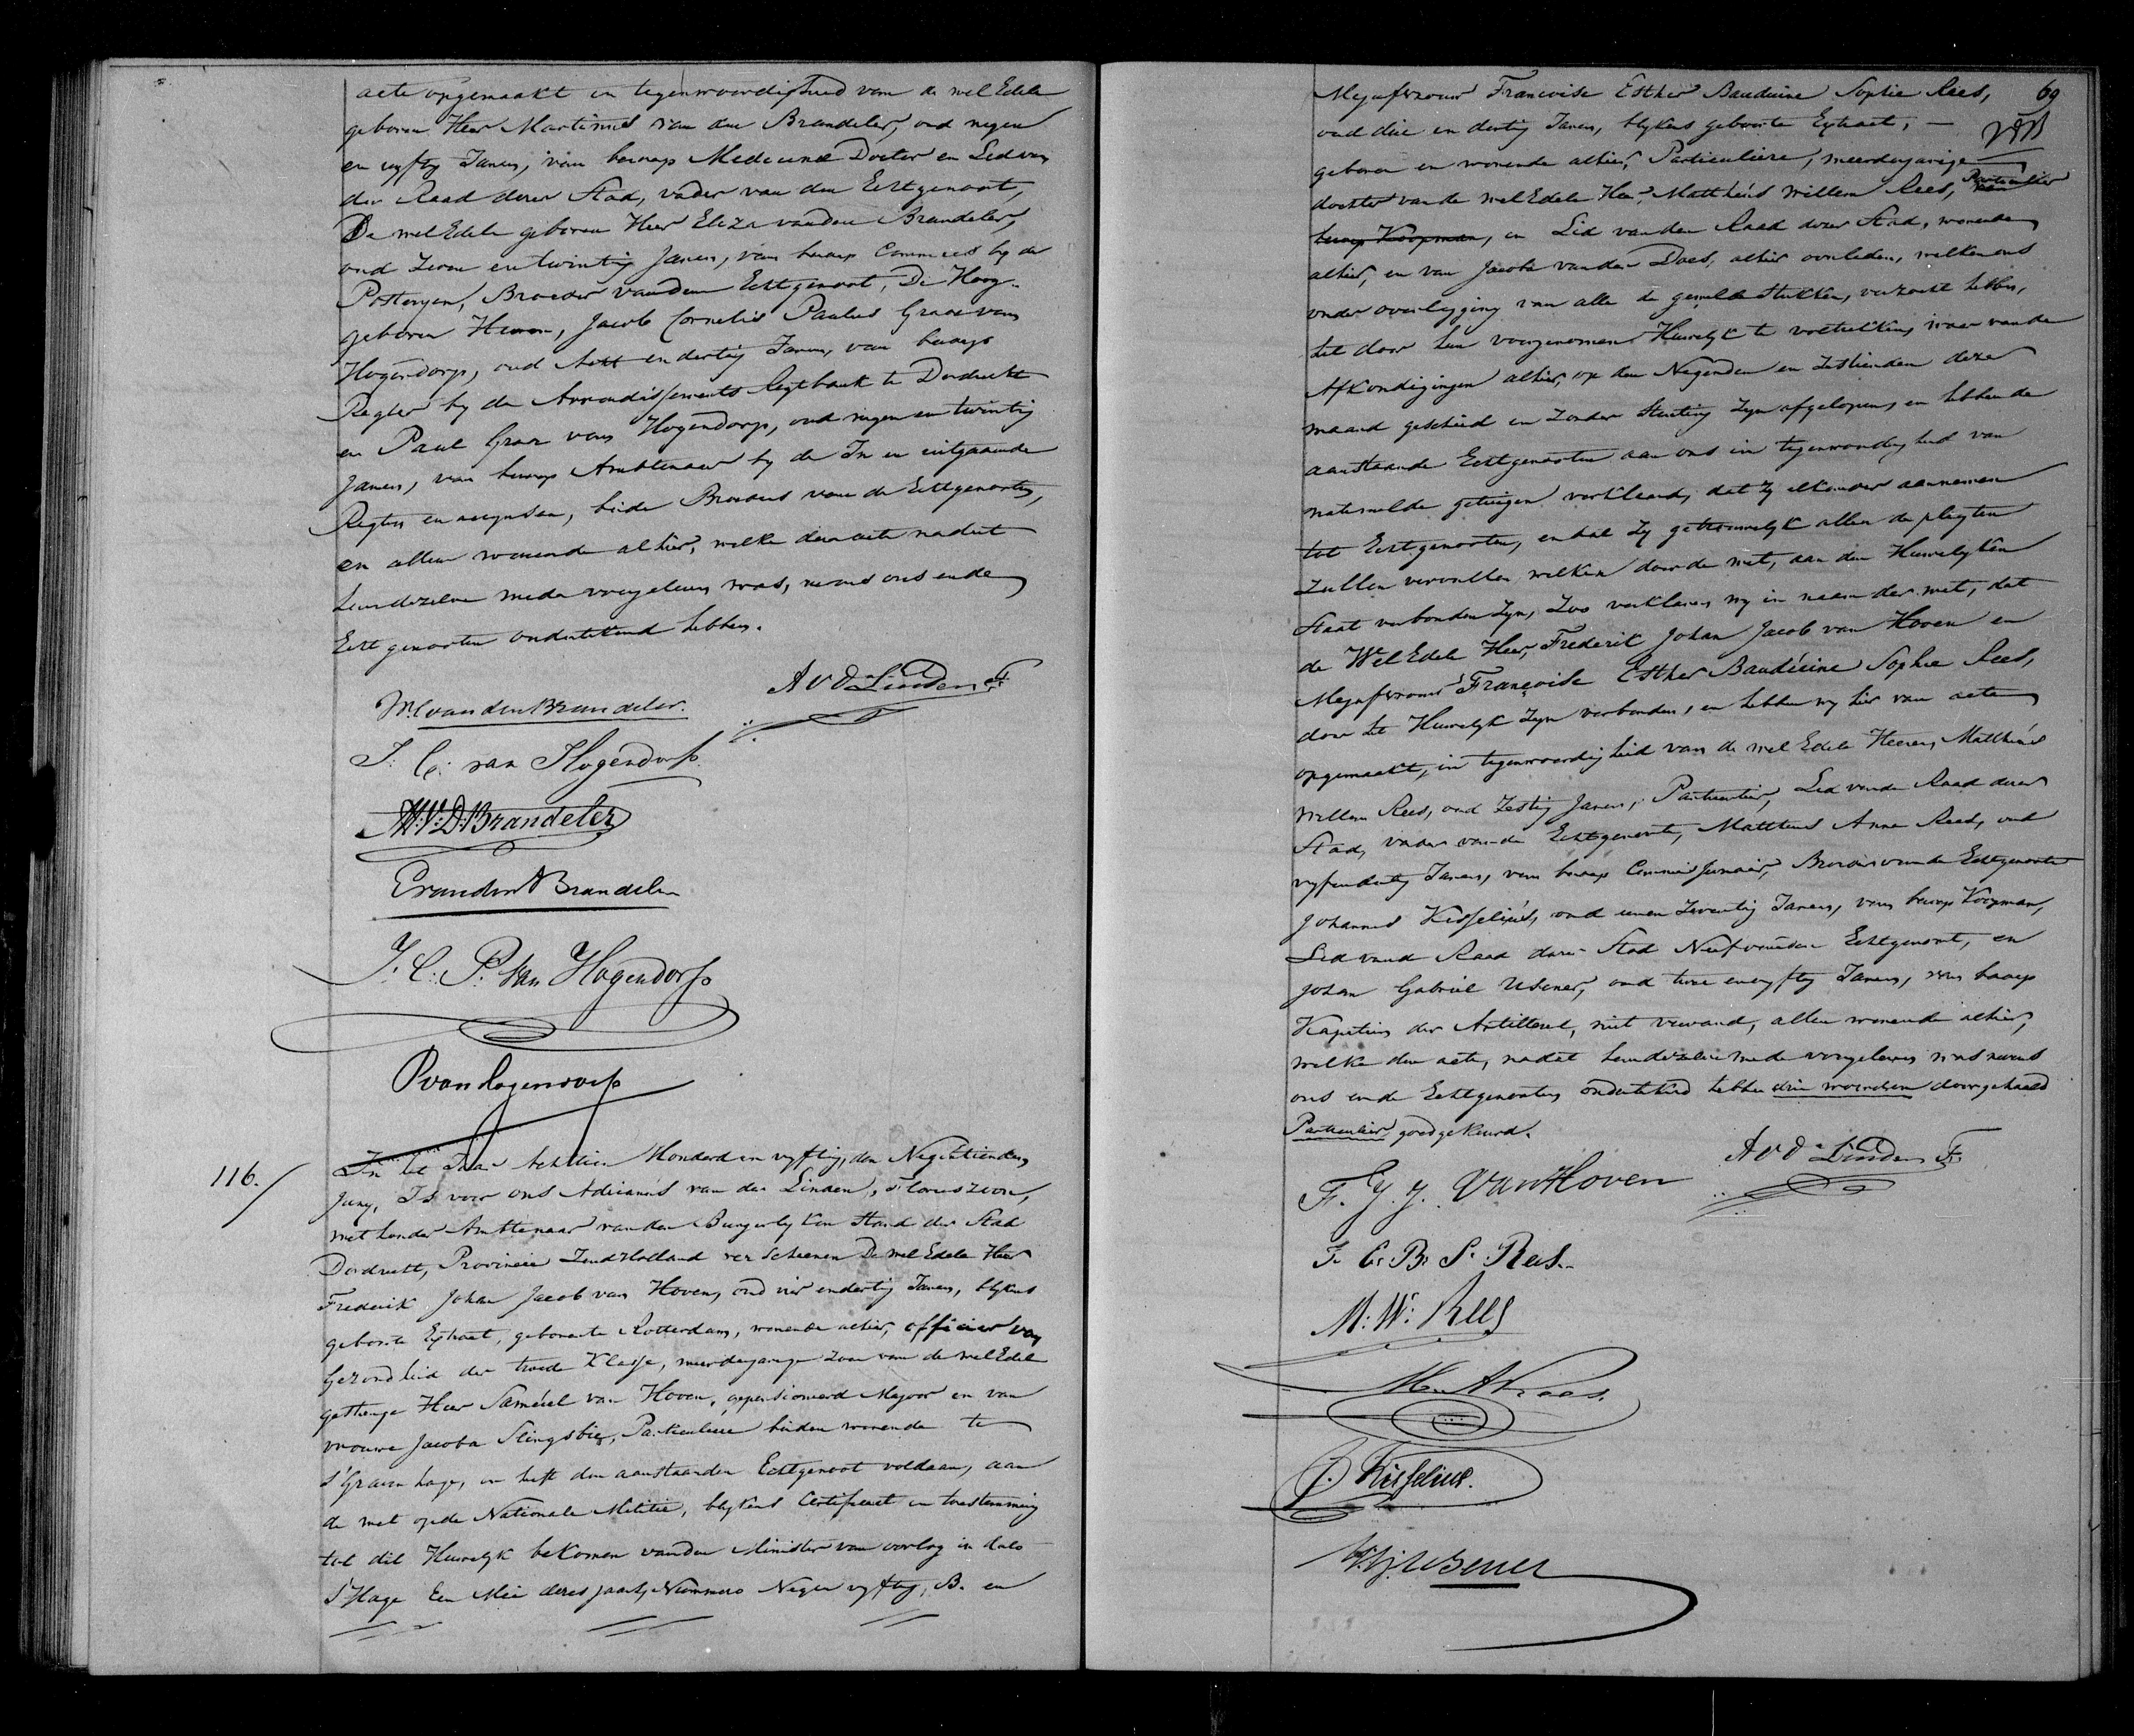 acte opgemaakt in tegenwoordigheid van de wel Edele
geboren Heer Martinus van den Brandeler, oud negen
en vyftig Jaren, van beroep Medicinæ Doctor en Lid van
den Raad dezer Stad, vader van den Echtgenoot,
De wel Edele geboren Heer Eliza van den Brandeler,
oud Zeven en twintig Jaren, van beroep Commies by de
Posteryen, Broeder van den Echtgenoot, De Hoog-
geboren Heeren, Jacob Cornelis Paulus Graaf van
Hogendorp, oud Acht en dertig Jaren, van beroep
Regter by de Arrondissements Regtbank te Dordrecht
en Paul Graaf van Hogendorp, oud negen en twintig
Jaren, van beroep Ambtenaar by de In en uitgaande
Regten en accynsen, beide Broeders van de Echtgenoote,
en allen wonende alhier, welke deze acte nadat
hendezelve mede voorgelezen was, nevens ons en de
Echtgenooten onderteekend hebben.
A V D Linden Fz
M C van den Brandeler.
J. C. van Hogendorp.
M. V. D. Brandeler
E van den Brandeler
J. C. P. van Hogendorp
P van Hogendorp
116.
In het Jaar Achttien Honderd en vyftig, den Negentienden
Juny, Is voor ons Adrianus van der Linden, Floriszoon,
Wethouder Ambtenaar van den Burgerlyken Stand der Stad
Dordrecht, Provincie Zuid Holland verschenen De wel Edele Heer
Frederik Johan Jacob van Hoven, oud vier en dertig Jaren, blykens
geboorte Extract, geboren te Rotterdam, wonende alhier, officier van
gezondheid der tweede Klasse, meerderjarige zoon van de wel Edele
gestrenge Heer Samuel van Hoven, gepensioneerd Majoor en van
vrouwe Jacoba Slingsbie, Particuliere beiden wonende te
s'Gravenhage, en heeft den aanstaanden Echtgenoot voldaan, aan
de wet op de Nationale Militie, blykens Certificaat en toestemming
tot dit Huwelyk bekomen van den Minister van oorlog in dato
s'Hage Een Mei dezes jaars, Nummero Negen vyftig, B. en
69
Mejufvrouw Francoise Esther Bauduine Sophie Rees,
oud drie en dertig Jaren, blykens geboorte Extract, —
geboren en wonende alhier, Particuliere, meerderjarige
dochter van de wel Edele Heer, Mattheus Willem Rees, Particulier
beroep Koopman, en Lid van den Raad dezer Stad, wonende
alhier, en van Jacoba van der Does, alhier overleden, welken ons
onder overlegging van alle de gemelde stukken, verzocht hebben,
het door hen voorgenomen Huwelyk te voltrekken, waar van de
Afkondigingen alhier, op den Negenden en Zestienden dezer
maand geschied en zonder stuiting zyn afgeloopen, en hebben de
aanstaande Echtgenooten aan ons in tegenwoordigheid van
natemelde getuigen verklaard, dat zy elkander aannemen
tot Echtgenooten, en dat zy getrouwelyk allen de pligten
zullen vervullen welken door de wet, aan den Huwelyken
Staat verbonden zyn, Zoo verklaren wy in naam der wet, dat
de Wel Edele Heer, Frederik Johan Jacob van Hoven en
Mejufvrouw Françoise Esther Bauduine Sophie Rees,
door het Huwelyk zyn verbonden, en hebben wy hier van acte
opgemaakt, in tegenwoordigheid van de wel Edele Heeren, Mattheus
Willem Rees, oud Zestig Jaren, Particulier, Lid van den Raad dezer
Stad, vader van de Echtgenoote, Mattheus Anne Rees, oud
vyf en dertig Jaren, van beroep Commissionair, Broeder van de Echtgenoote
Johannes Kisselius, oud een en Zeventig Jaren, van beroep Koopman,
Lid van de Raad dezer Stad Neef van den Echtgenoot, en
Johan Gabriel Usener, oud twee en vyftig Jaren, van beroep
Kapitein der Artillerie, niet verwand, allen wonende alhier,
welke deze acte, nadat hendezelve mede voorgelezen was nevens
ons en de Echtgenooten onderteekend hebben drie woorden doorgehaald
Particulier goedgekeurd.
A V D Linden Fz
F. J. J. Van Hoven
F. E. B. S. Rees.
M: W. Rees
M A Rees.
J. Kisselius.
Usener